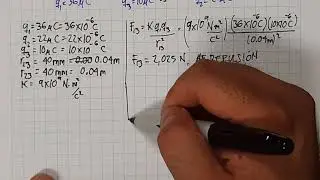 q₁=36μC=36X10⁻⁶C
q₂=22μC=22X10⁻⁶C
q₃=10μC=10X10⁻⁶C
r₁₃=40mm=0.04m
r₂₃=40mm=0.04m
K=9X10⁹ N·m²/C²
F₁₃=Kq₁q₃/r₁₃²=(9X10⁹N·m²/C²)(36X10⁻⁶C)(10X10⁻⁶C)/(0.04m)²
F₁₃=2,025 N, DE REPULSIÓN